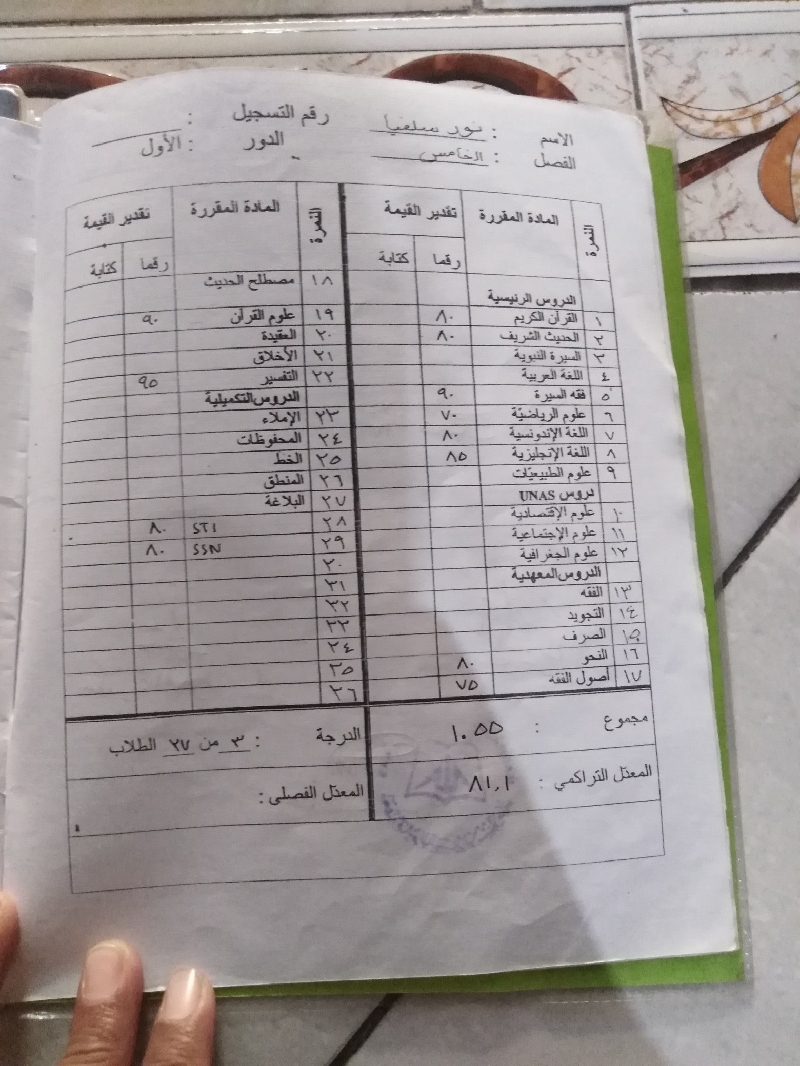 الاسم : نور سلفيا رقم التسجيل :
الفصل : الخامس الدور : الأول
النمرة المادة المقررة تقدير القيمة
رقما كتابة
الدروس الرئيسية
١ القرآن الكريم ٨٠
٢ الحديث الشريف ٨٠
٣ السيرة النبوية
٤ اللغة العربية
٥ فقه السيرة ٩٠
٦ علوم الرياضيّة ٧٠
٧ اللغة الإندونسية ٨٠
٨ اللغة الإنجليزية ٨٥
٩ علوم الطبيعيّات
دروس UNAS
١٠ علوم الإقتصادية
١١ علوم الإجتماعية
١٢ علوم الجغرافية
الدروس المعهدية
١٣ الفقه
١٤ التجويد
١٥ الصرف
١٦ النحو ٨٠
١٧ أصول الفقه ٧٥
النمرة المادة المقررة تقدير القيمة
رقما كتابة
١٨ مصطلح الحديث
١٩ علوم القرآن ٩٠
٢٠ العقيدة
٢١ الأخلاق
٢٢ التفسير ٩٥
الدروس التكميلية
٢٣ الإملاء
٢٤ المحفوظات
٢٥ الخط
٢٦ المنطق
٢٧ البلاغة
٢٨ STI ٨٠
٢٩ SSN ٨٠
٣٠
٣١
٣٢
٣٣
٣٤
٣٥
٣٦
مجموع : ١٠٥٥ الدرجة : ٣ من ٢٧ الطلاب
المعدّل التراكمي : ٨١,١ المعدّل الفصلى :